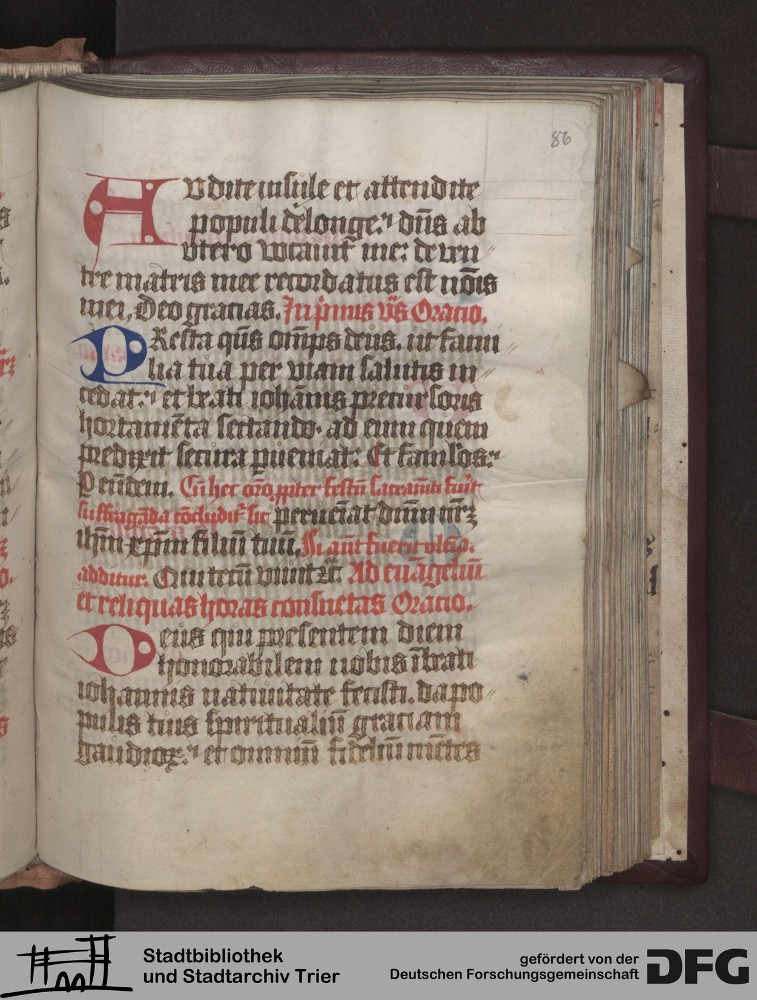 86
Audite insule et attendite
populi delonge: dn̄s ab
vtero vocauit me: de ven
tre matris mee recordatus est nōis
mei, Deo gracias. In p̄mis vs̄ Oracio.
PResta qūs om̄ps deus. ut fami
lia tua per viam salutis in
cedat: et beati ioh̄annis precursoris
hortamēta sectando. ad eum quem
predixit secura ꝑueniat: Et famlos:
P eūdem. Cū hec
suffragāda cōcludit᷑ sic perueniat dn̄m nr̄ꝫ
ih̄m xp̄m filiū tuū. Si aūt fuerit vltīa.
additur. Qui tecū viuit ⁊c̄ Ad euāgeliū
et reliquas horas consuetas Oracio.
Deus qui presentem diem
honorabilem nobis ī beati
iohannis natiuitate fecisti. da po
pulis tuis spiritualiū graciam
gaudioꝝ: et omniū fideliū mētes
Stadtbibliothek
und Stadtarchiv Trier
gefördert von der
Deutschen Forschungsgemeinschaft
DFG